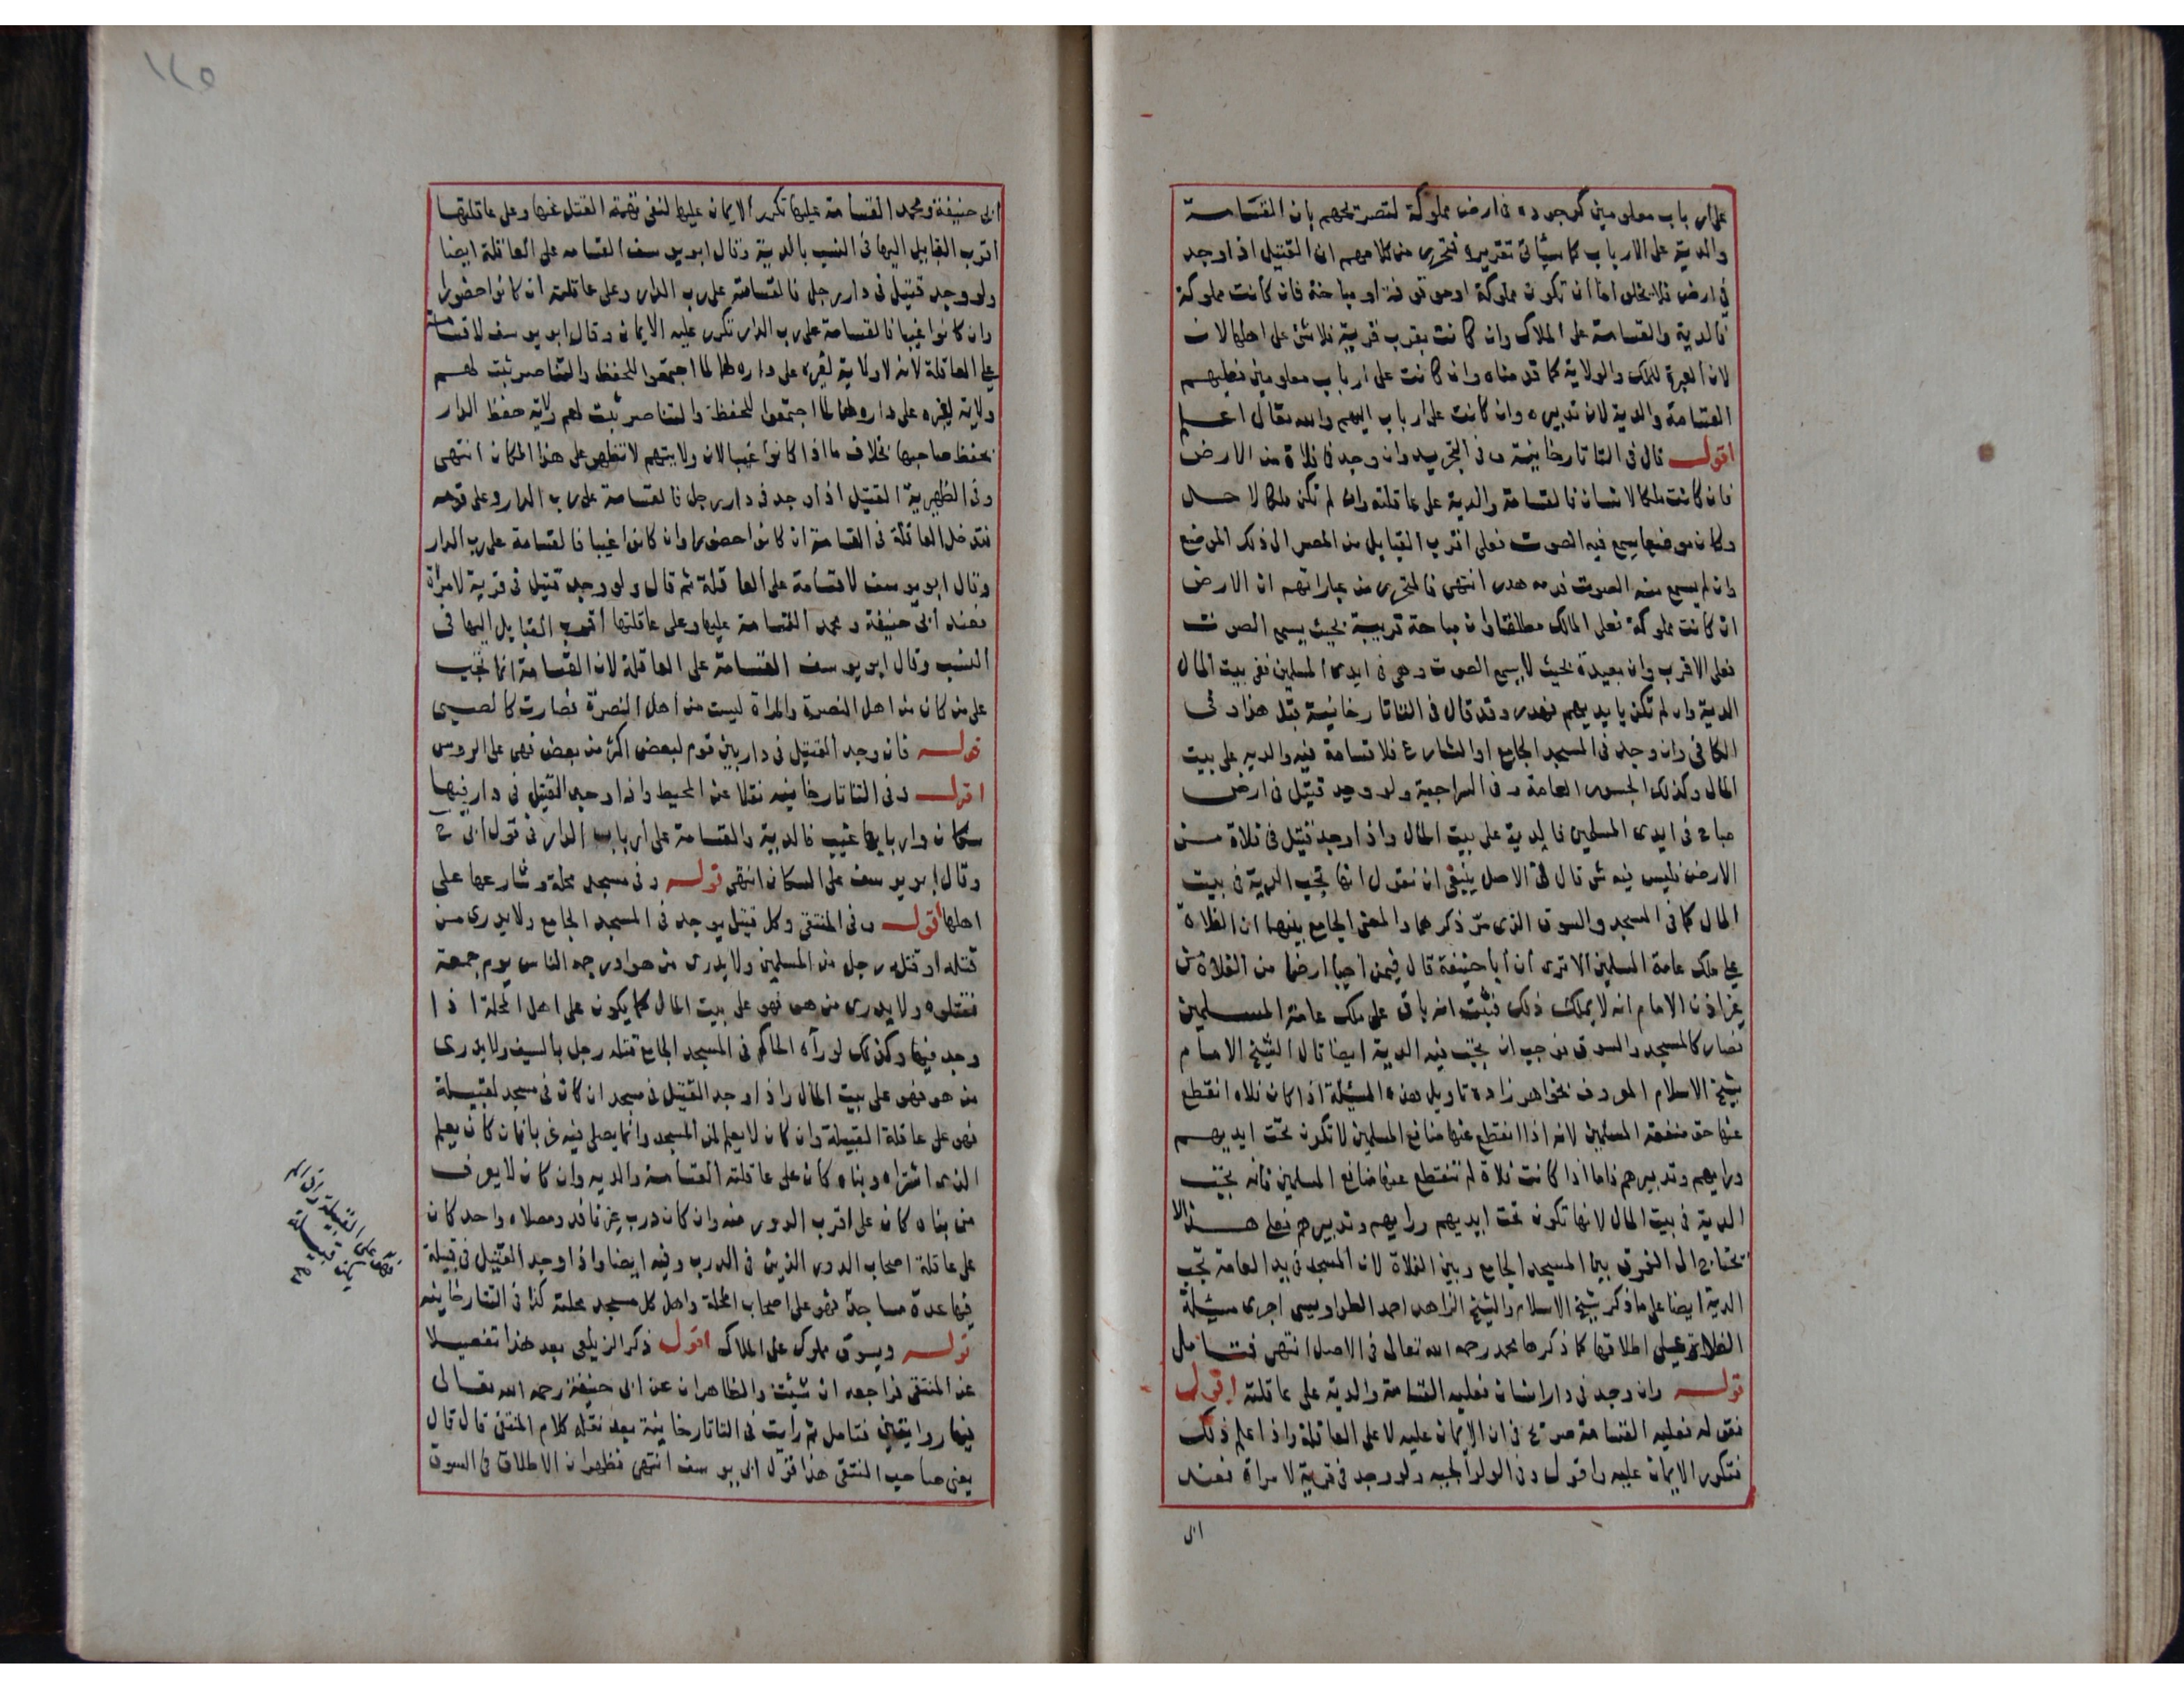 على ارباب معلومين كوجوده فى ارض مملوكة لتصريحهم بان القسامة
والدية على الارباب كما سيأتى تقريره فتحرر من كلامهم ان القتيل اذا وجد
فى ارض فلا يخلو اما ان تكون مملوكة او موقوفة او مباحة فان كانت مملوكة
فالدية والقسامة على الملاك وان كانت بقرب قرية فلا شئ على اهلها لان
لان العبرة للملك والولاية كما قدمناه وان كانت على ارباب معلومين فعليهم
القسامة والدية لان تدبيره وان كانت على ارباب اليهم والله تعالى اعلم
اقول قال فى التاتارخانية وفى التجريد وان وجد فى فلاة من الارض
فان كانت ملكا لانسان فالقسامة والدية على عاقلته وان لم تكن ملكا لاحد
وكان موضعا يسمع فيه الصوت فعلى اقرب القبايل من المصر الى ذلك الموضع
وان لم يسمع منه الصوت فدمه هدر انتهى فالمتحرر من عباراتهم ان الارض
ان كانت مملوكة فعلى المالك مطلقا وان مباحة قريبة بحيث يسمع الصوت
فعلى الاقرب وان بعيدة بحيث لا يسمع الصوت وهى فى ايدى المسلمين ففى بيت المال
الدية وان لم تكن بايديهم فهدر وقد قال فى التاتارخانية قبل هذا وفى
الكافى وان وجد فى المسجد الجامع او الشارع فلا قسامة فيه والديه على بيت
المال وكذلك الجسور العامة وفى السراجية ولو وجد قتيل فى ارض
مباح فى ايدى المسلمين فالدية على بيت المال واذا وجد قتيل فى فلاة من
الارض فليس فيه شئ قال فى الاصل ينبغى ان نقول انها تجب الدية فى بيت
المال كما فى المسجد والسوق الذى مر ذكرهما والمعنى الجامع بينهما ان الفلاة
على ملك عامة المسلمين الا ترى ان ابا حنيفة قال فيمن احيا ارضا من الفلاة من
غير اذن الامام انه لا يملك ذلك فثبت انه باق على ملك عامة المسلمين
فصار كالمسجد والسوق فوجب ان تجب فيه الدية ايضا قال الشيخ الامام
شيخ الاسلام المعروف بخواهر زاده تاويل هذه المسئلة اذا كان فلاة انقطع
عنها حق منفعة المسلمين لانه اذا انقطع عنها منافع المسلمين لا تكون تحت ايديهم
ورايهم وتدبيرهم فاما اذا كانت فلاة لم تنقطع عنها منافع المسلمين فانه تجب
الدية فى بيت المال لانها تكون تحت ايديهم ورايهم وتدبيرهم فعلى هذا لا
تحتاج الى الفرق بين المسجد الجامع وبين الفلاة لان المسجد فى يد العامة تجب
الدية ايضا على ما ذكر شيخ الاسلام والشيخ الزاهد احمد الطواويسى اجرى مسئلة
الفلاة على اطلاقها كما ذكرها محمد رحمه الله تعالى فى الاصل انتهى فتامل
قوله وان وجد فى دار انسان فعليه القسامة والدية على عاقلته اقول
فقوله فعليه القسامة صريح فى ان الايمان عليه لا على العاقلة واذا علم ذلك
فتكرر الايمان عليه واقول وفى الولوالجيه ولو وجد فى قرية لامراة فعند
ابى
١٢٥
ابى حنيفة ومحمد القسامة عليها تكرر الايمان عليها لنفى تهمة القتل عنها وعلى عاقلتها
اقرب القبايل اليها فى النسب بالدية وقال ابو يوسف القسامه على العاقلة ايضا
ولو وجد قتيل فى دار رجل فالقسامة على رب الدار وعلى عاقلته ان كانوا حضورا
وان كانوا غيبا فالقسامة على رب الدار تكرر عليه الايمان وقال ابو يوسف لا قسامة
على العاقلة لانه لا ولاية لغيره على داره لهما لما اجتمعوا للحفظ والتناصر ثبت لهم
ولاية لغيره على داره لهما لما اجتمعوا للحفظ والتناصر ثبت لهم ولاية حفظ الدار
بحفظ صاحبها بخلاف ما اذا كانوا غيبا لان ولايتهم لا تظهر على هذا المكان انتهى
وفى الظهيرية القتيل اذا وجد فى دار رجل فالقسامة على رب الدار وعلى قومه
فتدخل العاقلة فى القسامة ان كانوا حضورا وان كانوا غيبا فالقسامة على رب الدار
وقال ابو يوسف لا قسامة على العاقلة ثم قال ولو وجد قتيل فى قرية لامرأة
فعند ابى حنيفة ومحمد القسامة عليها وعلى عاقلتها اقرب القبايل اليها فى
النسب وقال ابو يوسف القسامة على العاقلة لان القسامة انما تجب
على من كان من اهل النصرة والمراة ليست من اهل النصرة فصارت كالصبى
قوله فان وجد القتيل فى دار بين قوم لبعض اكثر من بعض فهى على الروس
اقول وفى التاتارخانيه نقلا عن المحيط واذا وجد القتيل فى دار فيها
سكان واربابها غيب فالدية والقسامة على ارباب الدار فى قول ابى ح
وقال ابو يوسف على السكان انتهى قوله وفى مسجد محلة وشارعها على
اهلها اقول وفى المنتقى وكل قتيل يوجد فى المسجد الجامع ولا يدرى من
قتله او قتله رجل من المسلمين ولا يدرى من هو او رجمه الناس يوم جمعة
فقتلوه ولا يدرى من هو فهو على بيت المال كما يكون على اهل المحلة اذا
وجد فيها وكذلك لو رآه الحاكم فى المسجد الجامع قتله رجل بالسيف ولا يدرى
من هو فهو على بيت المال واذا وجد القتيل فى مسجد ان كان فى مسجد لقبيلة
فهو على عاقلة القبيلة وان كان لا يعلم لمن المسجد وانما يصلى فيه غربا فان كان يعلم
الذى اشتراه وبناه كان على عاقلته القسامة والديه وان كان لا يعرف
من بناه كان على اقرب الدور منه وان كان درب غير نافذ ومصلاه واحد كان
على عاقلة اصحاب الدور الذين فى الدرب وفيه ايضا واذا وجد القتيل فى قبيلة
فيها عدة مساجد فهو على اصحاب المحلة واهل كل مسجد محلته كذا فى التتارخانيه
قوله وبسوق مملوك على الملاك اقول ذكر الزيلعى بعد هذا تفصيلا
عن المنتقى فراجعه ان شئت والظاهر ان عن ابى حنيفة رحمه الله تعالى
فيها روايتين فتامل ثم رأيت فى التاتارخانية بعد نقله كلام المنتقى قال قال
يعنى صاحب المنتقى هذا قول ابى يوسف انتهى فظهر ان الاطلاق فى السوق
فهو على القبيلة وان لم
يكن قبيلة
صح